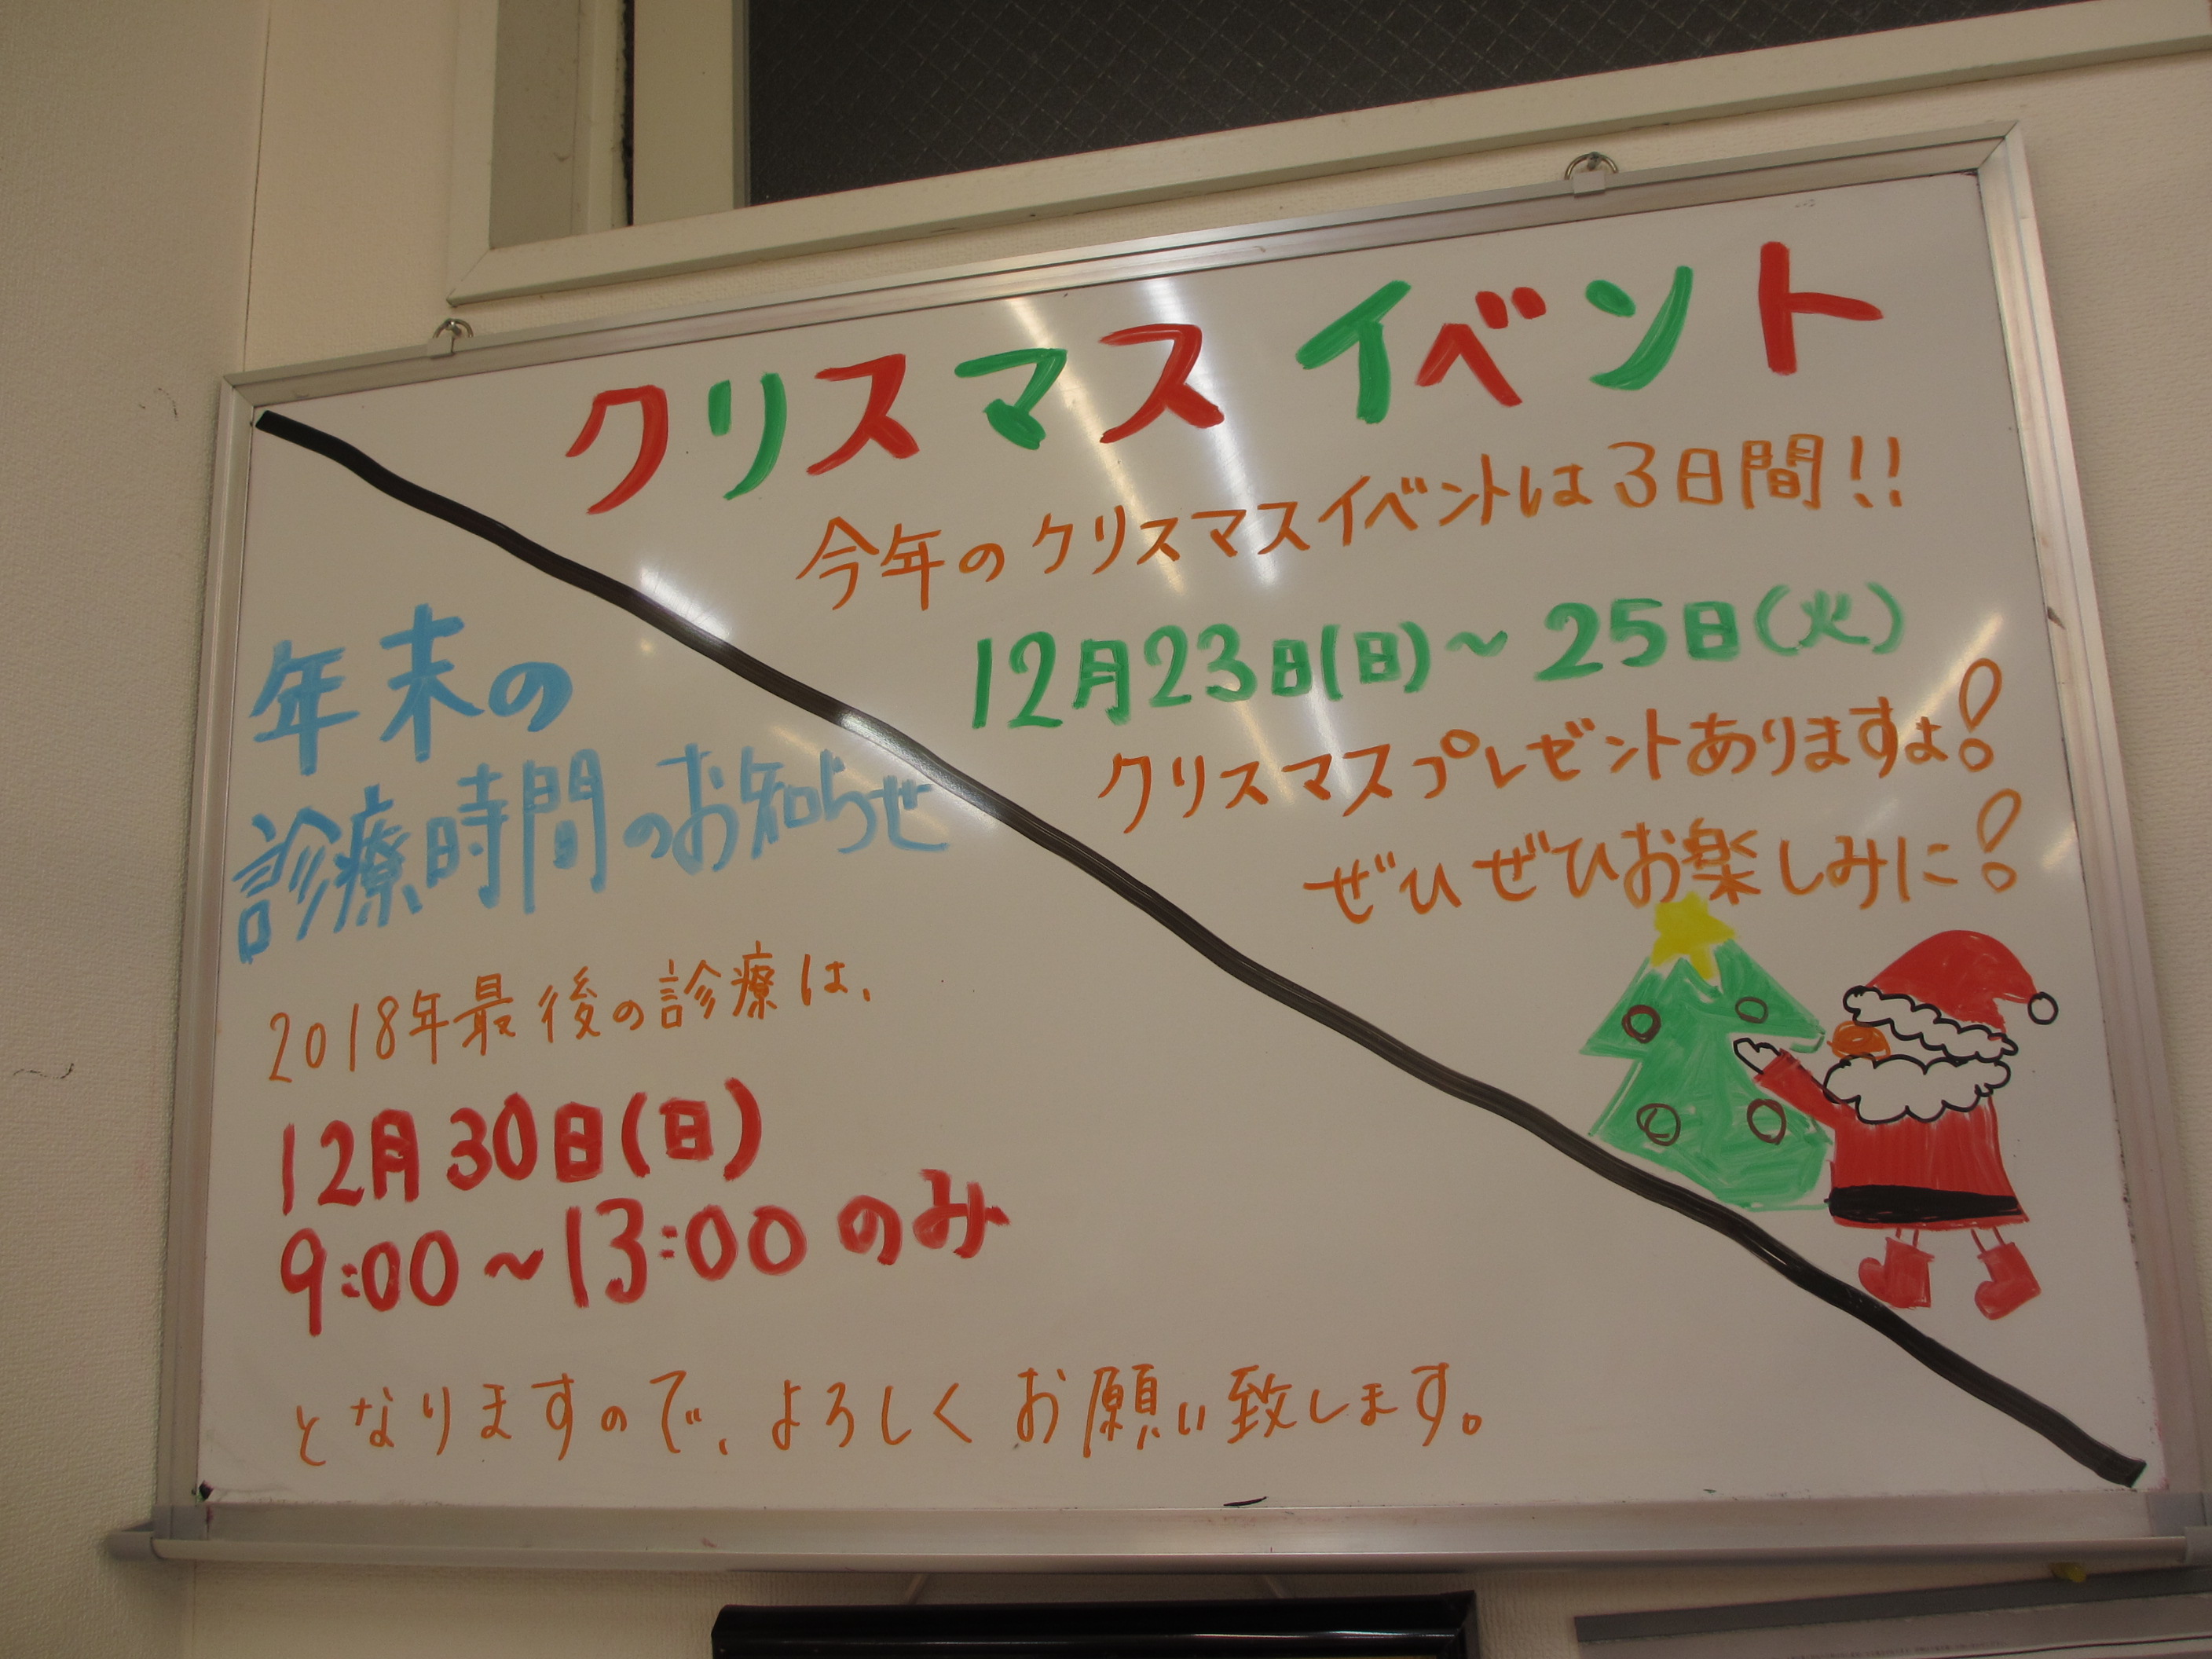 クリスマス イベント
今年のクリスマスイベントは3日間!!
12月23日(日)~25日(火)
クリスマスプレゼントありますよ!
ぜひぜひお楽しみに!
年末の
診療時間のお知らせ
2018年最後の診療は、
12月30日(日)
9:00~13:00のみ
となりますので、よろしくお願い致します。